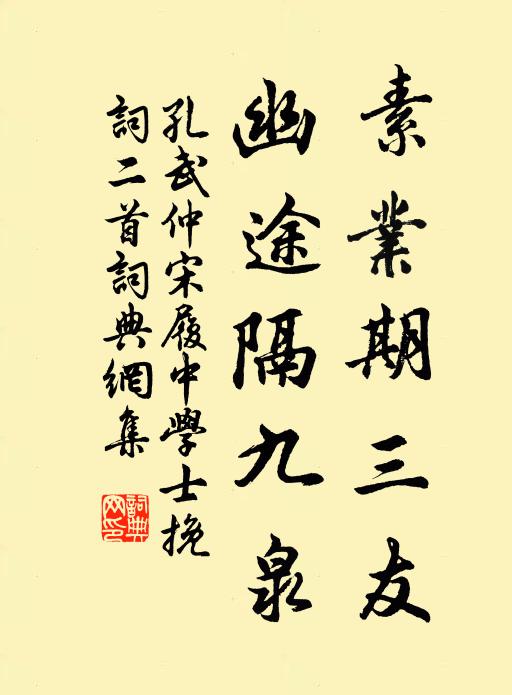 素業期三友
幽途隔九泉
孔武仲宋履中學士挽
詞二首詞典網集
詞典
網印